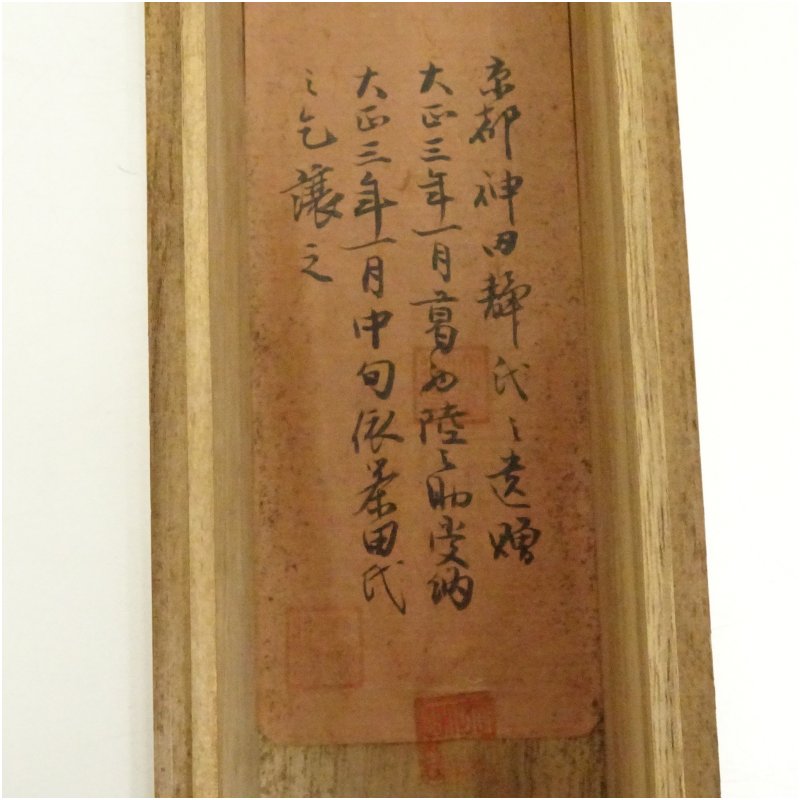 京都神田静氏之遺贈
大正三年一月葛西陸之助受納
大正三年一月中旬依茶田氏
之乞譲之